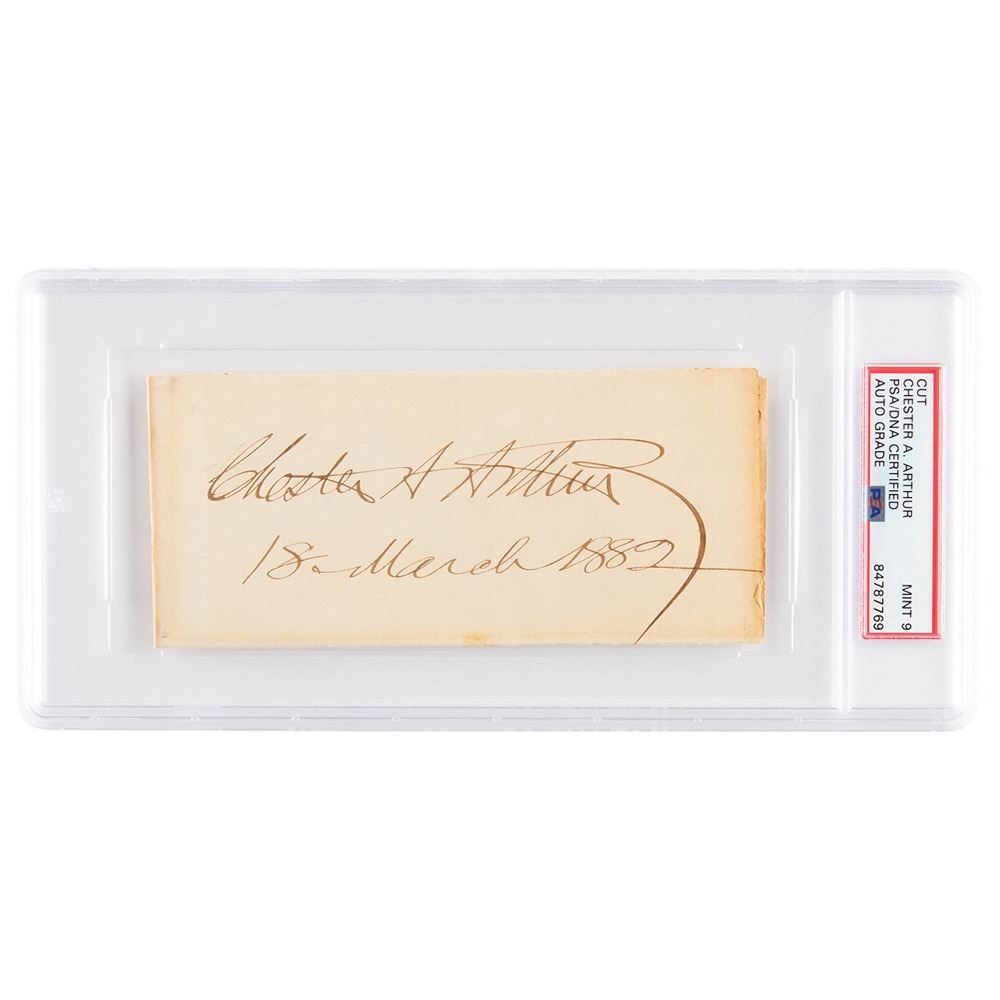 Chester A Arthur
18 March 1882
CUT
CHESTER A. ARTHUR
PSA/DNA CERTIFIED
AUTO GRADE MINT 9
PSA 84787769